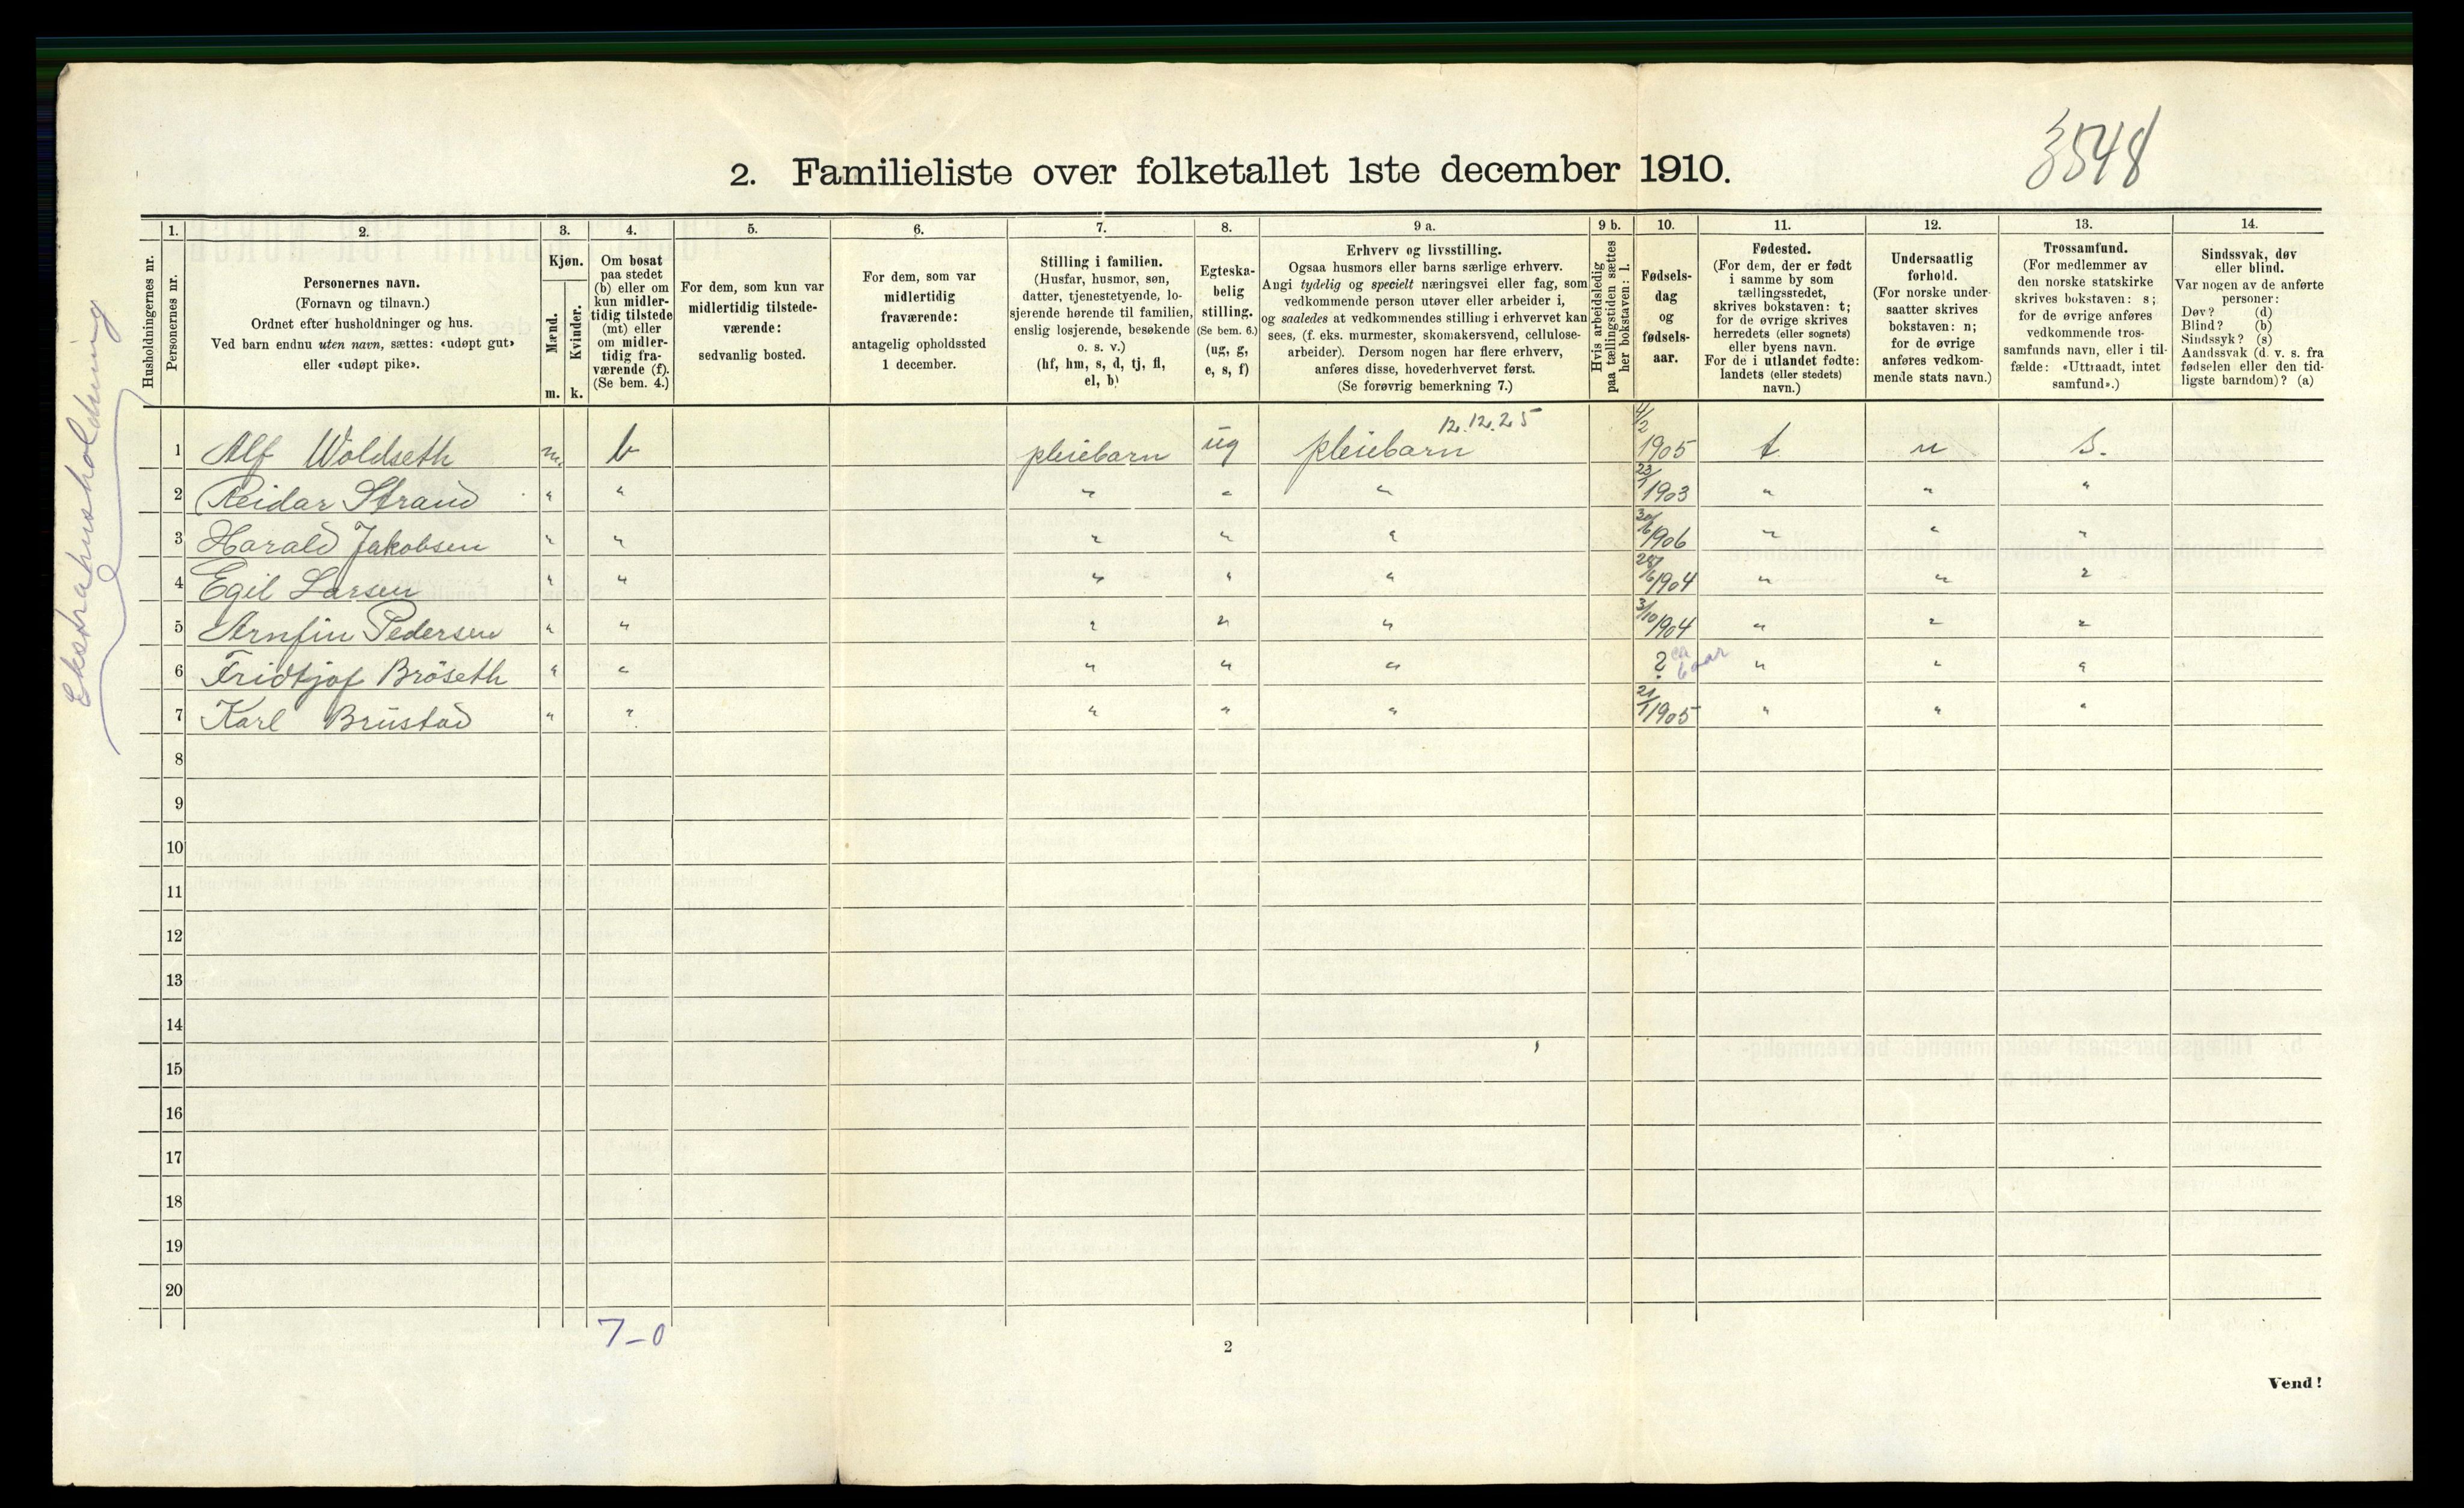 3548
2. Familieliste over folketallet 1ste december 1910.
Ekstrahusholdning
Husholdningernes nr.
1.
Personernes nr.
2.
Personernes navn.
(Fornavn og tilnavn.)
Ordnet efter husholdninger og hus.
Ved barn endnu uten navn, sættes: «udøpt gut»
eller «udøpt pike».
3.
Kjøn.
Mænd.
Kvinder.
m. k.
4.
Om bosat
paa stedet
(b) eller om
kun midler-
tidig tilstede
(mt) eller
om midler-
tidig fra-
værende (f).
(Se bem. 4.)
5.
For dem, som kun var
midlertidig tilstede-
værende:
sedvanlig bosted.
6.
For dem, som var
midlertidig
fraværende:
antagelig opholdssted
1 december.
7.
Stilling i familien.
(Husfar, husmor, søn,
datter, tjenestetyende, lo-
sjerende hørende til familien,
enslig losjerende, besøkende
o. s. v.)
(hf, hm, s, d, tj, fl,
el, b)
8.
Egteska-
belig
stilling.
(Se bem. 6.)
(ug, g,
e, s, f)
9 a.
Erhverv og livsstilling.
Ogsaa husmors eller barns særlige erhverv.
Angi tydelig og specielt næringsvei eller fag, som
vedkommende person utøver eller arbeider i,
og saaledes at vedkommendes stilling i erhvervet kan
sees, (f. eks. murmester, skomakersvend, cellulose-
arbeider). Dersom nogen har flere erhverv,
anføres disse, hovederhvervet først.
(Se forøvrig bemerkning 7.)
9 b.
Hvis arbeidsledig
paa tællingstiden sættes
her bokstaven: l.
10.
Fødsels-
dag
og
fødsels-
aar.
11.
Fødested.
(For dem, der er født
i samme by som
tællingsstedet,
skrives bokstaven: t;
for de øvrige skrives
herredets (eller sognets)
eller byens navn.
For de i utlandet fødte:
landets (eller stedets)
navn.)
12.
Undersaatlig
forhold.
(For norske under-
saatter skrives
bokstaven: n;
for de øvrige
anføres vedkom-
mende stats navn.)
13.
Trossamfund.
(For medlemmer av
den norske statskirke
skrives bokstaven: s;
for de øvrige anføres
vedkommende tros-
samfunds navn, eller i til-
fælde: «Uttraadt, intet
samfund».)
14.
Sindssvak, døv
eller blind.
Var nogen av de anførte
personer:
Døv? (d)
Blind? (b)
Sindssyk? (s)
Aandssvak (d. v. s. fra
fødselen eller den tid-
ligste barndom)? (a)
12.12.25
1 Alf Woldseth m. b pleiebarn ug pleiebarn 4/2 1905 t n s.
2 Reidar Strand " " " " " 23/1 1903 " " "
3 Harald Jakobsen " " " " " 30/6 1906 " " "
4 Egil Larsen " " " " " 28/6 1904 " " "
5 Arnfin Pedersen " " " " " 3/10 1904 " " "
6 Fridtjof Brøseth " " " " " ? ca 6 aar " " "
7 Karl Brustad " " " " " 21/1 1905 " " "
8
9
10
11
12
13
14
15
16
17
18
19
20
7-0
2
Vend!